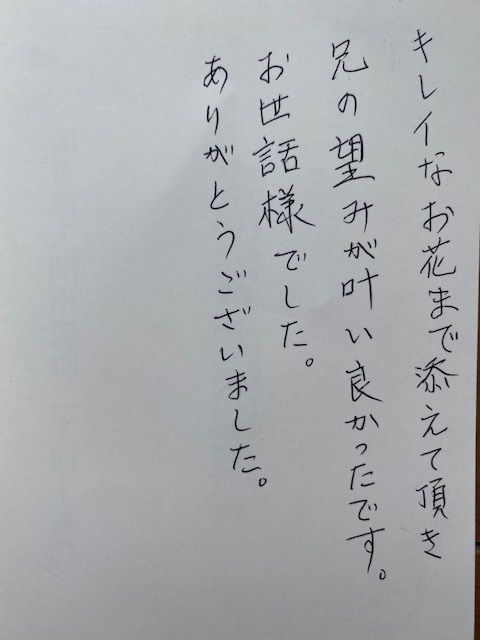 キレイなお花まで添えて頂き
兄の望みが叶い良かったです。
お世話様でした。
ありがとうございました。